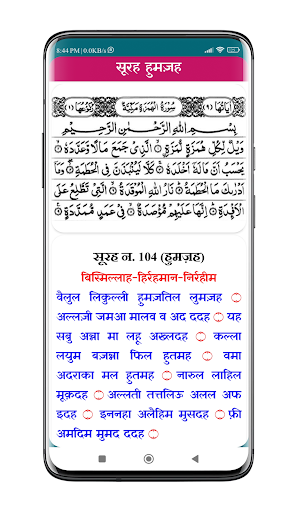 8:44 PM | 0.0KB/s
सूरह हुमज़ह
اٰیَاتُهَا (٩) سُوْرَةُ الْهُمَزَةِ مَكِّیَّةٌ رُكُوْعُهَا (١)
بِسْمِ اللّٰهِ الرَّحْمٰنِ الرَّحِیْمِ
وَیْلٌ لِّكُلِّ هُمَزَةٍ لُّمَزَةِ ۟ الَّذِیْ جَمَعَ مَالًا وَّعَدَّدَهٗ ۟
یَحْسَبُ اَنَّ مَالَهٗۤ اَخْلَدَهٗ ۟ كَلَّا لَیُنْۢبَذَنَّ فِی الْحُطَمَةِ ۟ وَمَاۤ
اَدْرٰىكَ مَا الْحُطَمَةُ ۟ نَارُ اللّٰهِ الْمُوْقَدَةُ ۟ الَّتِیْ تَطَّلِعُ عَلَی
الْاَفْـِٕدَةِ ۟ اِنَّهَا عَلَیْهِمْ مُّؤْصَدَةٌ ۟ فِیْ عَمَدٍ مُّمَدَّدَةٍ ۟
सूरह न. 104 (हुमज़ह)
बिस्मिल्लाह-हिर्रहमान-निर्रहीम
वैलुल लिकुल्ली हुमज़तिल लुमज़ह
अल्लज़ी जमआ मालव व अद ददह यह
सबु अन्ना मा लहू अख्लदह कल्ला
लयुम बज़न्ना फिल हुतमह वमा
अदराका मल हुतमह नारुल लाहिल
मूक़दह अल्लती तत्तलिऊ अलल अफ
इदह इननहा अलैहिम मुसदह फ़ी
अमदिम मुमद ददह